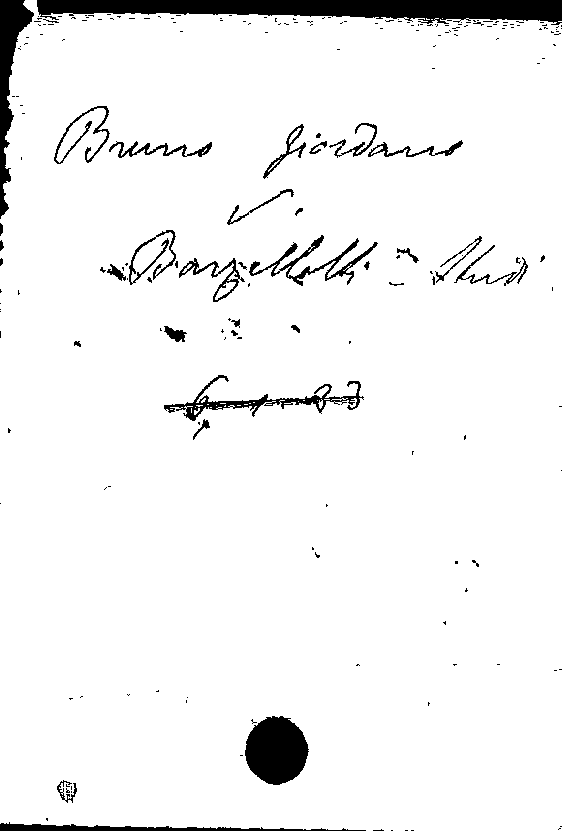 Bruno Giordano
V.
Barzellotti = Studi
6. 1. 83